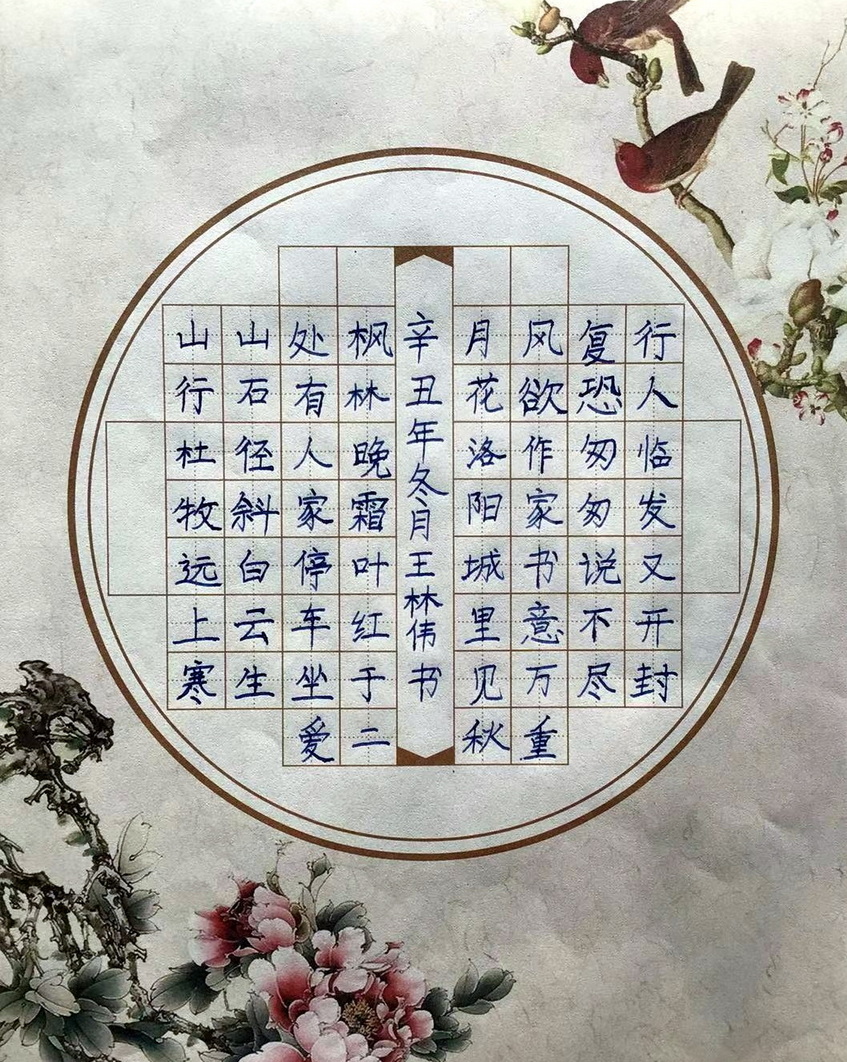 山行杜牧远上寒
山石径斜白云生
处有人家停车坐爱
枫林晚霜叶红于二
月花洛阳城里见秋
风欲作家书意万重
复恐匆匆说不尽
行人临发又开封
辛丑年冬月王林伟书